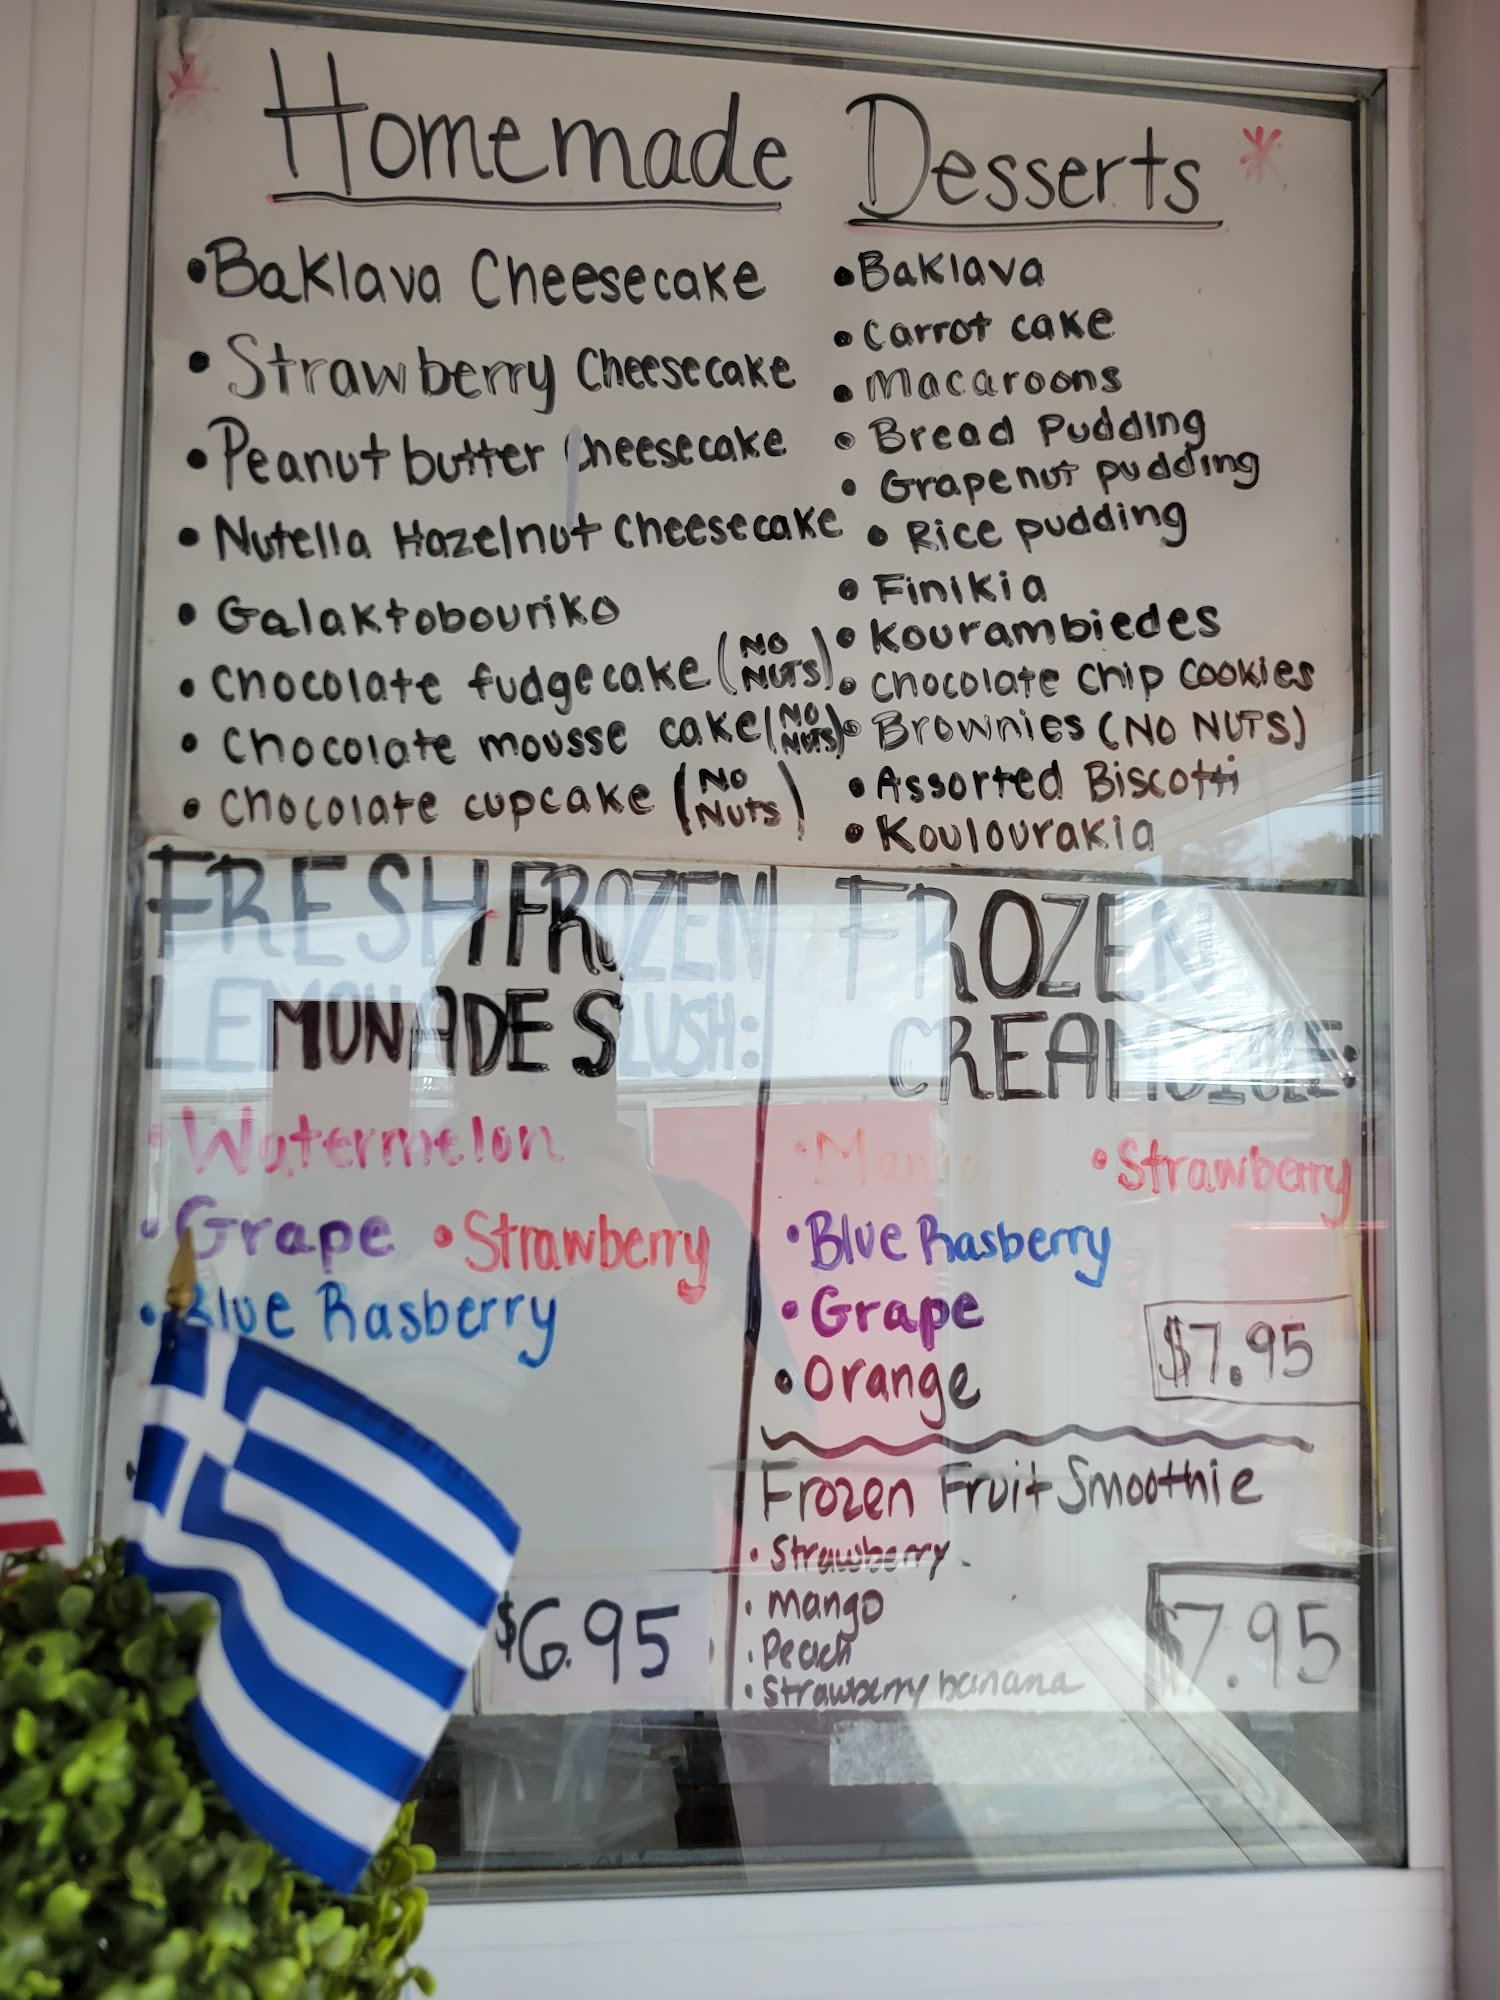 Homemade Desserts
• Baklava Cheesecake
• Strawberry Cheesecake
• Peanut butter Cheesecake
• Nutella Hazelnut Cheesecake
• Galaktobouriko
• Chocolate fudge cake (NO NUTS)
• Chocolate mousse cake (NO NUTS)
• Chocolate cupcake (NO NUTS)
• Baklava
• Carrot cake
• Macaroons
• Bread Pudding
• Grapenut pudding
• Rice pudding
• Finikia
• Kourambiedes
• Chocolate Chip Cookies
• Brownies (NO NUTS)
• Assorted Biscotti
• Koulourakia
FRESH FROZEN
LEMONADE SLUSH:
• Watermelon
• Grape • Strawberry
• Blue Rasberry
$6.95
FROZEN
CREAMSICLE:
• Mango • Strawberry
• Blue Rasberry
• Grape
• Orange
$7.95
Frozen Fruit Smoothie
• Strawberry
• Mango
• Peach
• Strawberry banana
$7.95